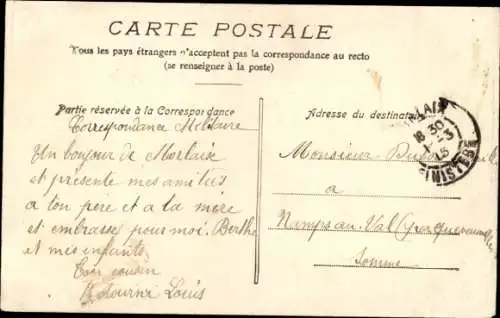 CARTE POSTALE
Tous les pays étrangers n'acceptent pas la correspondance au recto
(se renseigner à la poste)
Partie réservée à la Correspondance
Correspondance Militaire
Un bonjour de Morlaix
et présente mes amitiés
a ton père et a la mère
et embrasse pour moi Berthe
et mes enfants
Ton cousin
Louis
Adresse du destinataire
LAIX
18 30
1 - 3
15
FINISTERE
Monsieur
a
Namps au Val
Somme